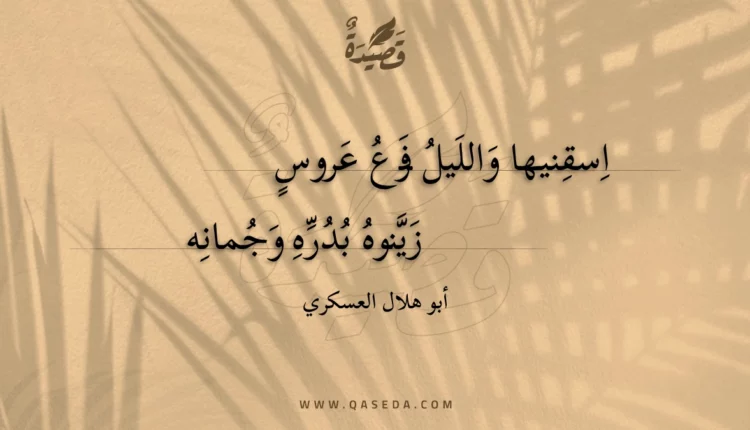 قَصِيْدَةٌ
اِسقِنيها وَاللَيلُ فَرعُ عَروسٍ
زَيَّنوهُ بُدُرِّهِ وَجُمانِه
أبو هلال العسكري
WWW.QASEDA.COM